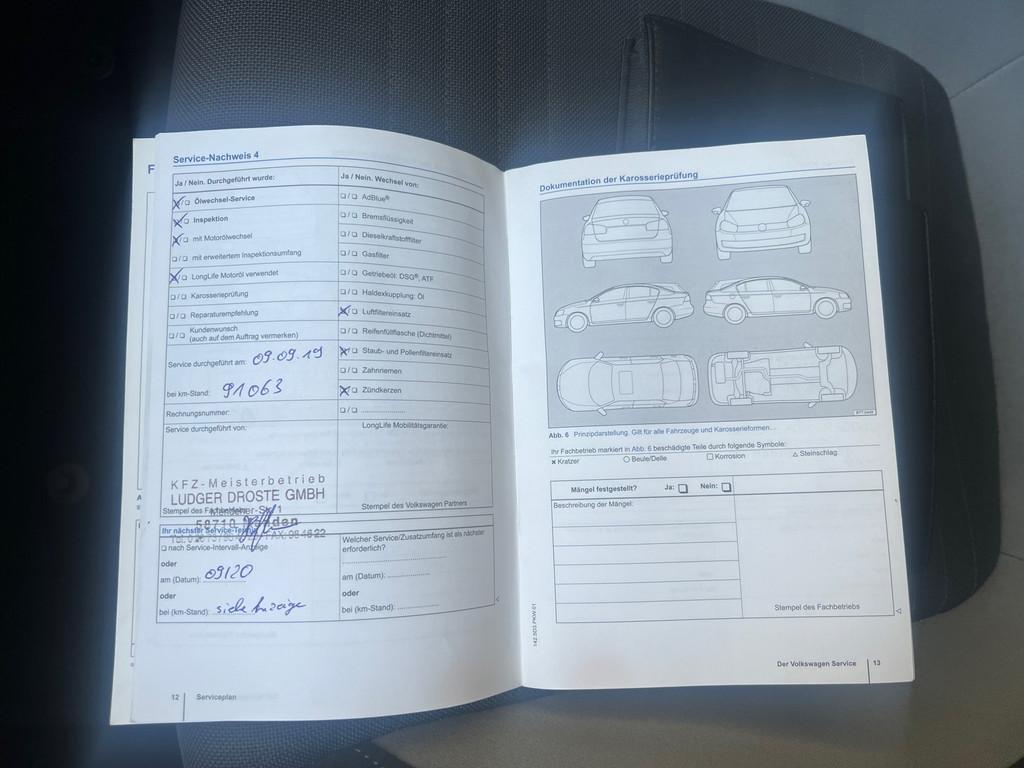 Service-Nachweis 4
Ja / Nein. Durchgeführt wurde:
Ölwechsel-Service
Inspektion
mit Motorölwechsel
mit erweitertem Inspektionsumfang
LongLife Motoröl verwendet
Karosserieprüfung
Reparaturempfehlung
Kundenwunsch
(auch auf dem Auftrag vermerken)
Service durchgeführt am: 09.09.19
bei km-Stand: 91063
Rechnungsnummer:
Service durchgeführt von:
KFZ-Meisterbetrieb
LUDGER DROSTE GMBH
Stempel des
58710
Ihr nächster Service-Termin
nach Service-Intervall-Anzeige
oder
am (Datum): 09/20
oder
bei (km-Stand): siehe Anzeige
Ja / Nein. Wechsel von:
AdBlue®
Bremsflüssigkeit
Dieselkraftstofffilter
Gasfilter
Getriebeöl: DSG®, ATF
Haldexkupplung: Öl
Luftfiltereinsatz
Reifenfüllflasche (Dichtmittel)
Staub- und Pollenfiltereinsatz
Zahnriemen
Zündkerzen
LongLife Mobilitätsgarantie:
Stempel des Volkswagen Partners
Welcher Service/Zusatzumfang ist als nächster
erforderlich?
am (Datum):
oder
bei (km-Stand):
12 Serviceplan
Dokumentation der Karosserieprüfung
Abb. 6 Prinzipdarstellung. Gilt für alle Fahrzeuge und Karosserieformen...
Ihr Fachbetrieb markiert in Abb. 6 beschädigte Teile durch folgende Symbole:
× Kratzer ○ Beule/Delle □ Korrosion △ Steinschlag
Mängel festgestellt? Ja: Nein:
Beschreibung der Mängel:
Stempel des Fachbetriebs
142.5G3.PKW.01
Der Volkswagen Service 13